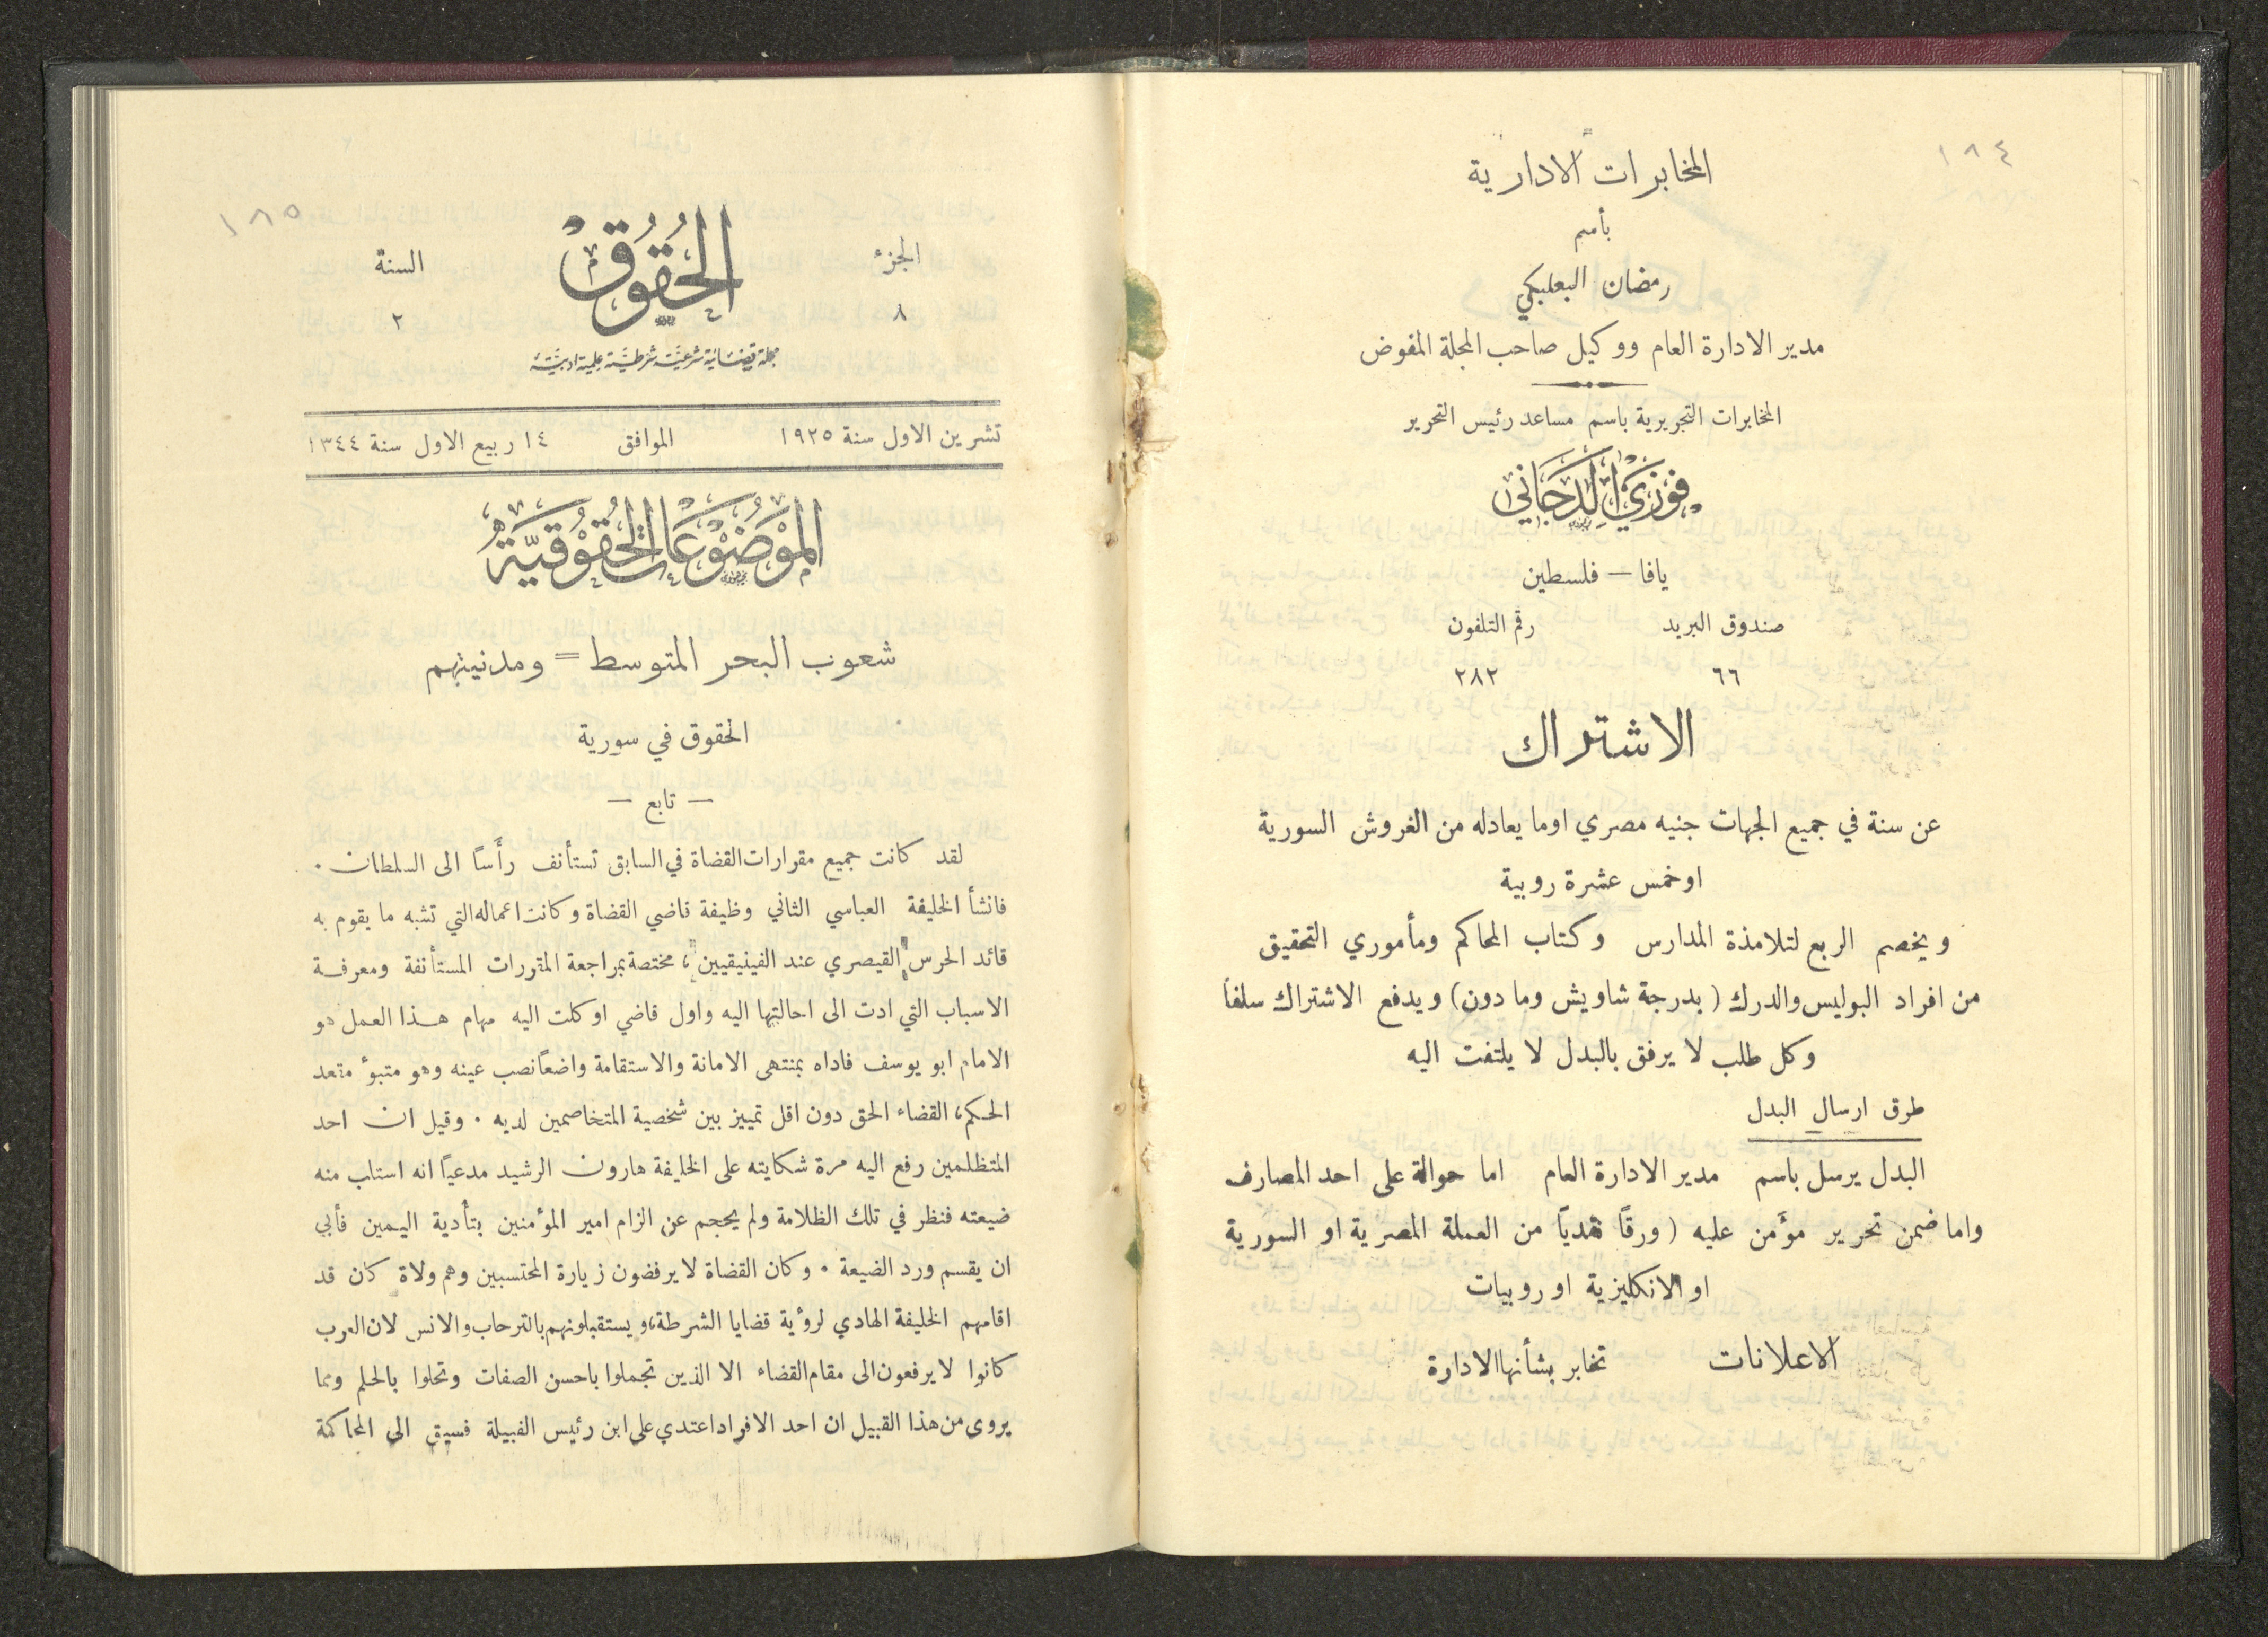 ١٨٤
المخابرات الادارية
بأسم
رمضان البعلبكي
مدير الادارة العام ووكيل صاحب المجلة المفوض
المخابرات التحريرية باسم مساعد رئيس التحرير
فوزي الدجاني
يافا — فلسطين
صندوق البريد رقم التلفون
٦٦ ٢٨٢
الاشتراك
عن سنة في جميع الجهات جنيه مصري اوما يعادله من الغروش السورية
اوخمس عشرة روبية
ويخصم الربع لتلامذة المدارس وكتاب المحاكم ومأموري التحقيق
من افراد البوليس والدرك ( بدرجة شاويش وما دون) ويدفع الاشتراك سلفاً
وكل طلب لا يرفق بالبدل لا يلتفت اليه
طرق ارسال البدل
البدل يرسل باسم مدير الادارة العام اما حوالة على احد المصارف
واما ضمن تحرير مؤمن عليه ( ورقاً نقدياً من العملة المصرية او السورية
او الانكليزية او روبيات
الاعلانات تخابر بشأنها الادارة
١٨٥
الجزء الحقوق السنة
٨ ٢
مجلة قضائية شرعية شرطية علمية ادبية
تشرين الاول سنة ١٩٢٥ الموافق ١٤ ربيع الاول سنة ١٣٤٤
الموضوعات الحقوقية
شعوب البحر المتوسط = ومدنيتهم
الحقوق في سورية
— تابع —
لقد كانت جميع مقرارات القضاة في السابق تستأنف رأساً الى السلطان .
فانشأ الخليفة العباسي الثاني وظيفة قاضي القضاة وكانت اعماله التي تشبه ما يقوم به
قائد الحرس القيصري عند الفينيقيين ، مختصة بمراجعة المقررات المستأنفة ومعرفة
الاسباب التي ادت الى احالتها اليه واول قاضي اوكلت اليه مهام هذا العمل هو
الامام ابو يوسف فاداه بمنتهى الامانة والاستقامة واضعاً نصب عينه وهو متبوأ مقعد
الحكم ، القضاء الحق دون اقل تمييز بين شخصية المتخاصمين لديه . وقيل ان احد
المتظلمين رفع اليه مرة شكايته على الخليفة هارون الرشيد مدعياً انه استلب منه
ضيعته فنظر في تلك الظلامة ولم يحجم عن الزام امير المؤمنين بتأدية اليمين فأبى
ان يقسم ورد الضيعة . وكان القضاة لا يرفضون زيارة المحتسبين وهم ولاة كان قد
اقامهم الخليفة الهادي لرؤية قضايا الشرطة ، ويستقبلونهم بالترحاب والانس لان العرب
كانوا لا يرفعون الى مقام القضاء الا الذين تجملوا باحسن الصفات وتحلوا بالحلم ومما
يروى من هذا القبيل ان احد الافراد اعتدي على ابن رئيس القبيلة فسيق الى المحاكمة